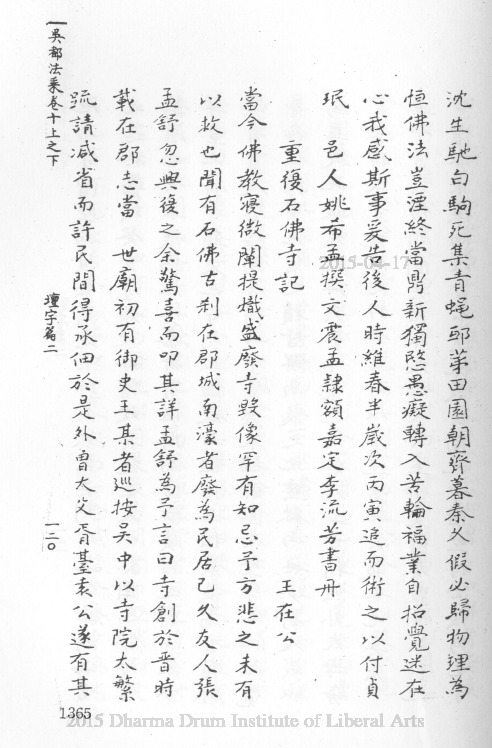 吳都法乘卷十上之下
壇宇篇二
一二〇
沈生馳白駒死集青蝇邸第田園朝齊暮秦久假必歸物理為
恒佛法豈湮終當鼎新獨愍愚癡轉入苦輪福業自招覺迷在
心我感斯事爰告後人時維春半歲次丙寅追而術之以付貞
珉　邑人姚希孟撰文震孟隸額嘉定李流芳書丹
重復石佛寺記　王在公
當今佛教寖微闡提熾盛廢寺毀像罕有知忌予方悲之未有
以救也聞有石佛古剎在郡城南濠者廢為民居已久友人張
孟舒忽興復之余驚喜而叩其詳孟舒為予言曰寺創於晋時
載在郡志當　世廟初有御史王某者巡按吳中以寺院太繁
疏請减省而許民間得承佃於是外曾大父胥臺袁公遂有其
1365
2015-04-17
2015 Dharma Drum Institute of Liberal Arts